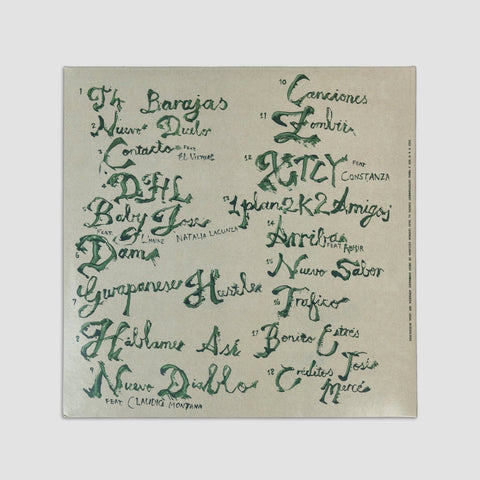 1 T4 Barajas
2 Nuevo Duelo
3 Contacto FEAT
EL VIRTUAL
4 DHL
5 Baby José
FEAT L. HAINZ NATALIA LACUNZA
6 Dame
7 Gwapanese Hustle
8 Háblame Así
9 Nuevo Diablo
FEAT CLAUDIO MONTANA
10 Canciones
11 Zombie
12 XTCY FEAT
CONSTANZA
13 1plan2K2Amigos
14 Arriba
FEAT ABHIR
15 Nuevo Sabor
16 Tráfico
17 Bonito Estrés
18 Créditos José
Mercé